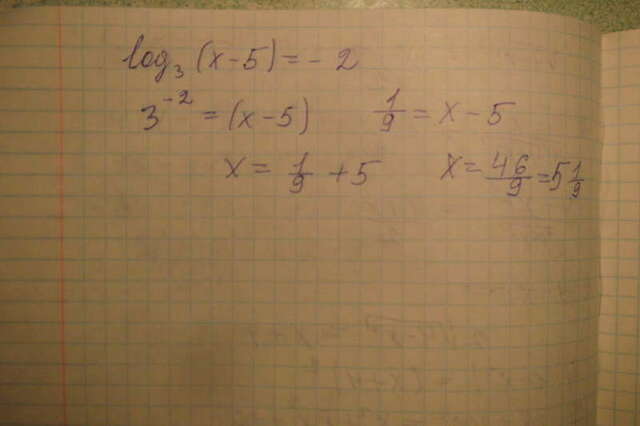 log₃(x-5)=-2
3⁻²=(x-5) 1/9=x-5
x=1/9+5 x=46/9=5 1/9